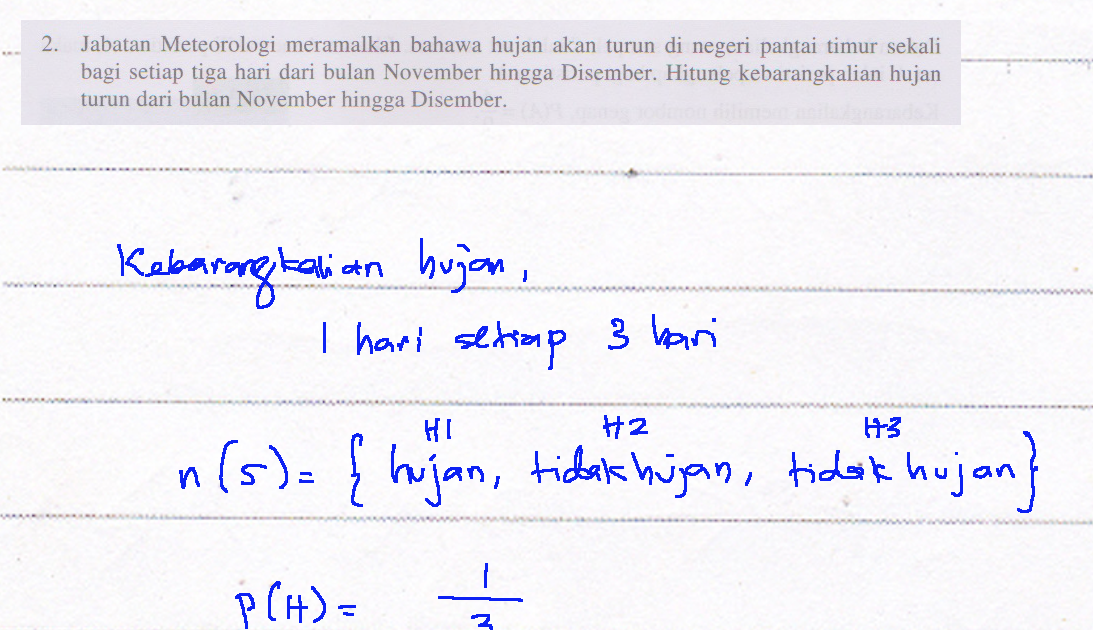 2. Jabatan Meteorologi meramalkan bahawa hujan akan turun di negeri pantai timur sekali
bagi setiap tiga hari dari bulan November hingga Disember. Hitung kebarangkalian hujan
turun dari bulan November hingga Disember.
Kebarangkalian hujan,
1 hari setiap 3 hari
H1 H2 H3
n(S) = { hujan, tidak hujan, tidak hujan }
P(H) = 1/3